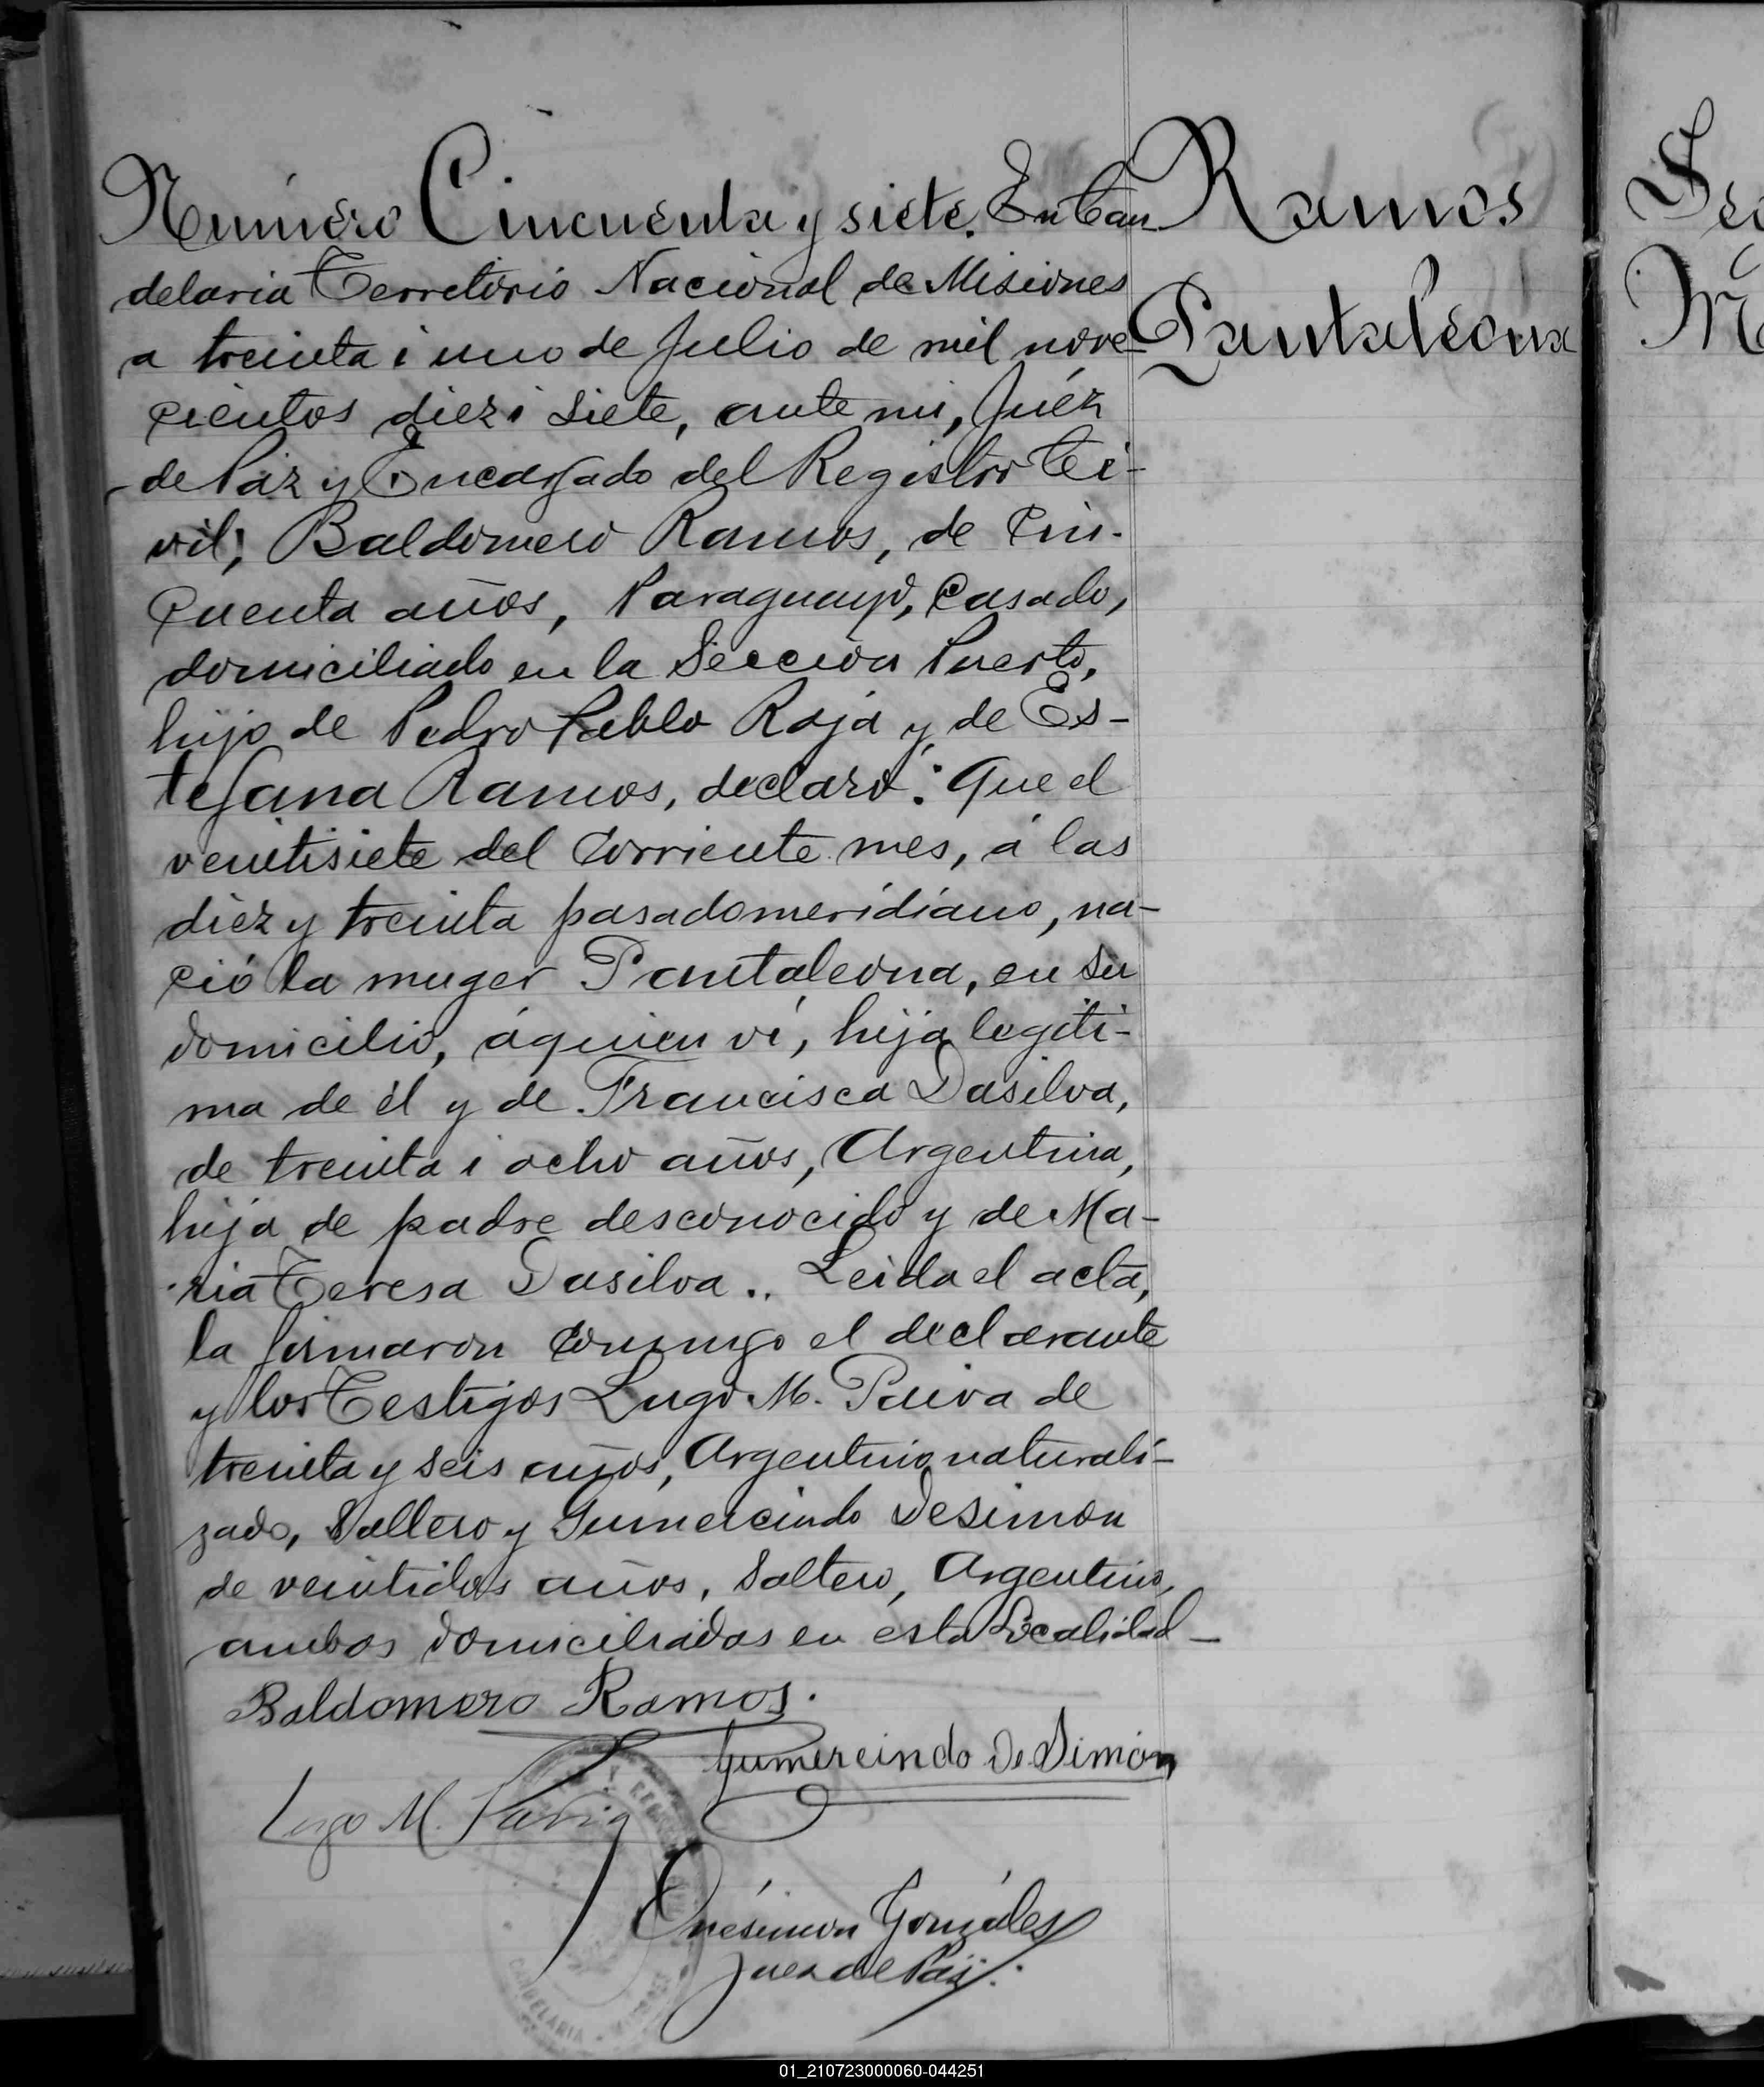 Número Cincuenta y siete. En Can
Ramos
delaria Territorio Nacional de Misiones
Pantaleona
a treinta i uno de Julio de mil nove
cientos diez i siete, ante mi, Juéz
de Páz y Encargado del Registro Ci-
vil; Baldomero Ramos, de Cin-
cuenta años, Paraguayo, Casado,
domiciliado en la Sección Puerto,
hijo de Pedro Pablo Roja y de Es-
tefana Ramos, declaró: Que el
veintisiete del Corriente mes, á las
diez y treinta pasadomeridiano, na-
ció la muger Pantaleona, en su
domicilio, áquien ví, hija legiti-
ma de él y de Francisca Dasilva,
de treinta i ocho años, Argentina,
hija de padre desconocido y de Ma-
ria Teresa Dasilva.. Leida el acta,
la firmaron conmigo el declarante
y los Testigos Lugo M. Paiva de
treinta y seis años, Argentino naturali-
zado, Soltero y Gumercindo Desimon
de veintidos años, Soltero, Argentino,
ambos domiciliados en esta Localidad
Baldomero Ramos.
Gumercindo De Simón
Lugo M. Paiva
Onésimon Gonzáles
Juez de Páz.
CANDELARIA
01_210723000060-044251